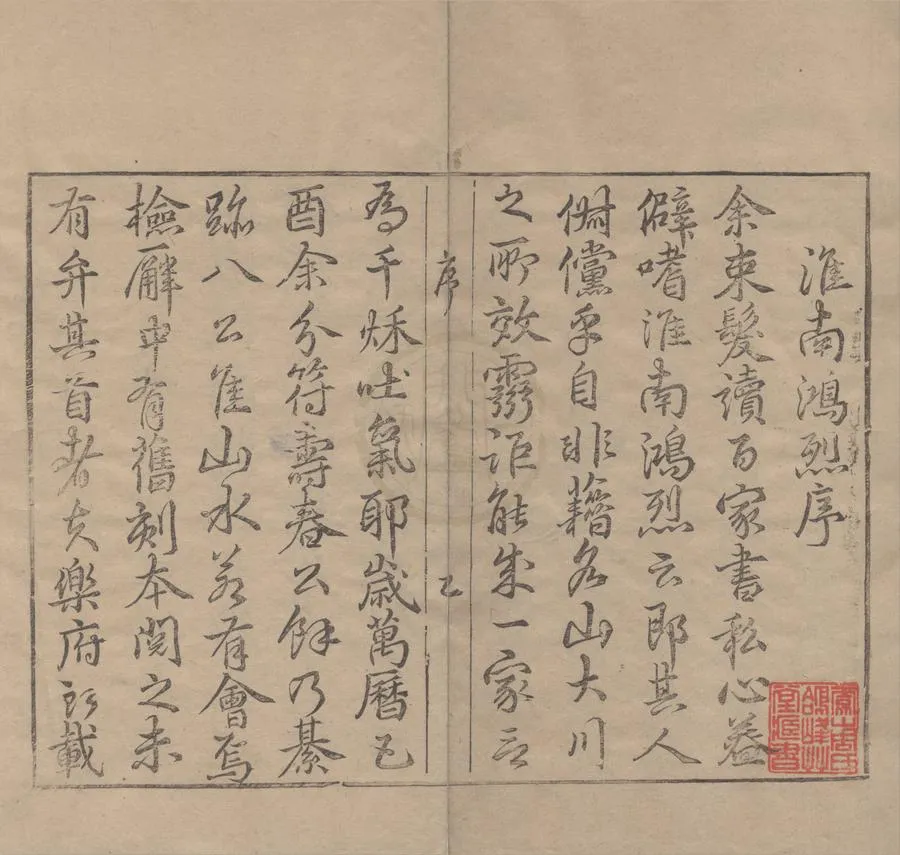 淮南鴻烈序
余束髮讀百家書私心葢
僻嗜淮南鴻烈云郎其人
倜儻乎自非藉名山大川
之所效靈詎能成一家言
序
乙
為千秌吐氣耶歲萬曆己
酉余分符壽春公餘乃綦
跡八公隹山水若有會焉
檢廨中有舊刻本閱之未
有弁其首者夫樂府所載